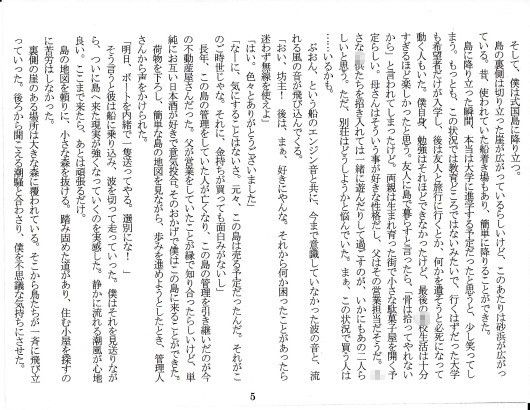 そして、僕は式国島に降り立つ。
島の裏側は切り立った崖が広がっているらしいけど、このあたりは砂浜が広がっ
ている。昔、使われていた船着き場もあり、簡単に降りることができた。
島に降り立った瞬間、本当は大学に進学する予定だったと思うと、少し笑ってし
まう。もっとも、この状況では教育どころではないみたいで、行くはずだった大学
も希望者だけが入学し、後は友人と旅行に行くとか、何かを遺そうと必死になって
動く人もいた。僕自身、勉強はそれほどできなかったけど、最後の校生活は十分
すぎるほど楽しかったと思う。友人に島で暮らすと言ったら、「骨は拾ってやれない
から」と言われてしまったけど。両親は生まれ育った街で小さな駄菓子屋を開く予
定らしい。母さんはそういう事が好きな性格だし、父はその営業担当だそうだ。
さな達を招き入れては一緒に遊んだりして過ごすのが、いかにもあの二人ら
しいと思う。ただ、別荘はどうしようかと悩んでいた。まぁ、この状況で買う人は
……いるかも。
ぶおん、という船のエンジン音と共に、今まで意識していなかった波の音と、流
れる風の音が飛び込んでくる。
「おい、坊主！　後は、まぁ、好きにやんな。それから何か困ったことがあったら
迷わず無線を使えよ」
「はい。色々とありがとうございました」
「なーに、気にすることはないさ。元々、この島は売る予定だったんだ。それがこ
のご時世じゃな。それに、金持ちが買っても面白みがないし」
長年、この島の管理をしていた人が亡くなり、この島の管理を引き継いだのが今
の不動産屋さんだった。父が営業をしていたことが縁で知り合ったらしいけど、単
純にお互い日本酒が好きで意気投合。そのおかげで僕はこの島に来ることができた。
荷物を下ろし、簡単な島の地図を見ながら、歩みを進めようとしたとき、管理人
さんから声をかけられた。
「明日、ボートを内緒で一隻送ってやる。選別にな！　」
そう言うと彼は船に乗り込み、波を切って走っていった。僕はそれを見送りなが
ら、ついに島へ来た現実が強くなっていくのを実感した。静かに流れる潮風が心地
良い。ここまで来たら、あとは頑張るだけ。
島の地図を頼りに、小さな森を抜ける。踏み固めた道があり、住む小屋を探すの
に苦労はしなかった。
裏側の崖のある場所は大きな森に覆われている。そこから鳥たちが一斉に飛び立
っていった。後ろから聞こえる潮騒と合わさり、僕を不思議な気持ちにさせた。
5